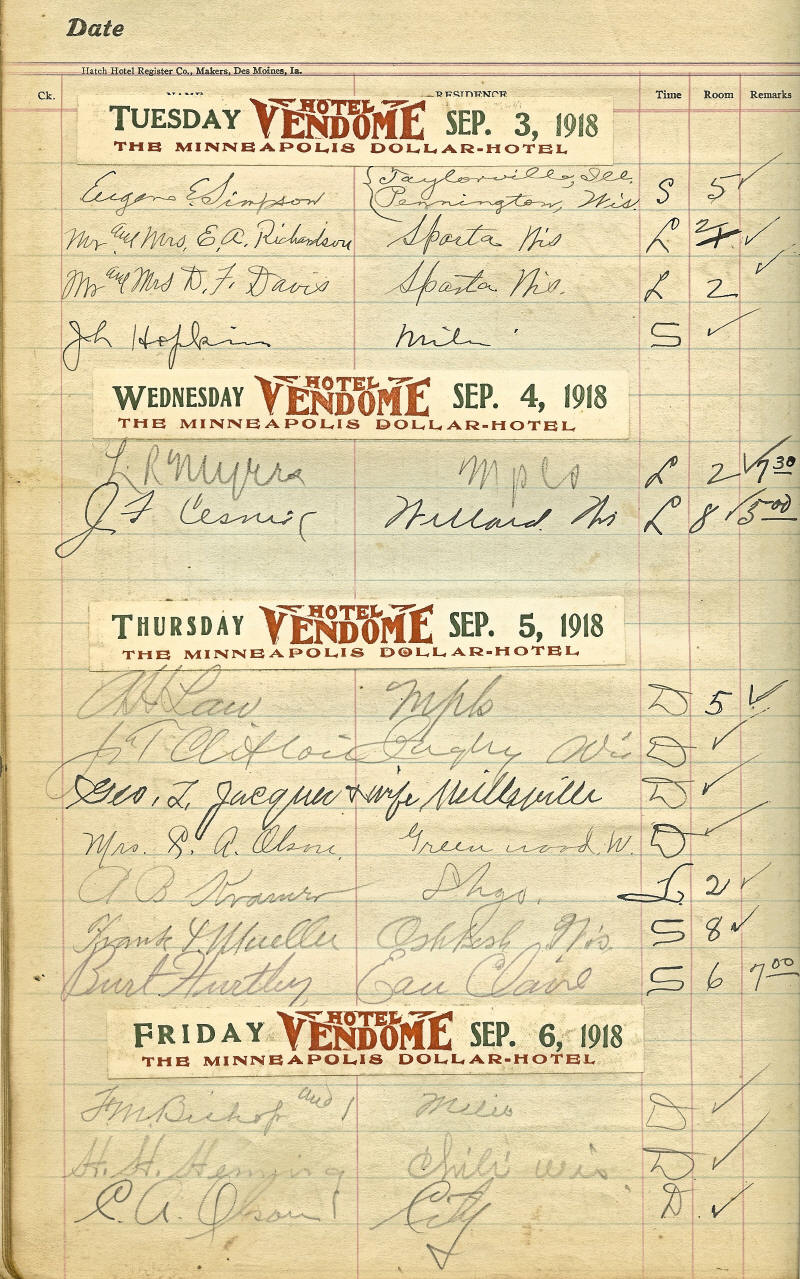 Date
Hatch Hotel Register Co., Makers, Des Moines, Ia.
Ck. NAME RESIDENCE Time Room Remarks
TUESDAY HOTEL VENDOME SEP. 3, 1918
THE MINNEAPOLIS DOLLAR-HOTEL
Eugene E. Simpson { Taylorville, Ill. Pennington, Wis. S 5 ✓
Mr and Mrs, E. A. Richardson Sparta Wis L ✓
Mr and Mrs D. F. Davis Sparta Wis. L 2 ✓
Jh Hopkins Milw S ✓
WEDNESDAY HOTEL VENDOME SEP. 4, 1918
THE MINNEAPOLIS DOLLAR-HOTEL
L R Mpls L 2 ✓ 7 30
J F Willard L 8 ✓ 5 00
THURSDAY HOTEL VENDOME SEP. 5, 1918
THE MINNEAPOLIS DOLLAR-HOTEL
Law Mpls D 5 ✓
Wis D ✓
Geo. L. Jacques & wife Neillsville D ✓
Mrs. R. A. Olson. Greenwood. W. D ✓
A B Kramer L 2 ✓
Frank Mueller Oshkosh Wis. S 8 ✓
Burt Hurtley Eau Claire S 6 7 00
FRIDAY HOTEL VENDOME SEP. 6, 1918
THE MINNEAPOLIS DOLLAR-HOTEL
F M Bishop and 1 D ✓
H. H. Heming Chili Wis. D ✓
C. A. Olson 1 City D ✓